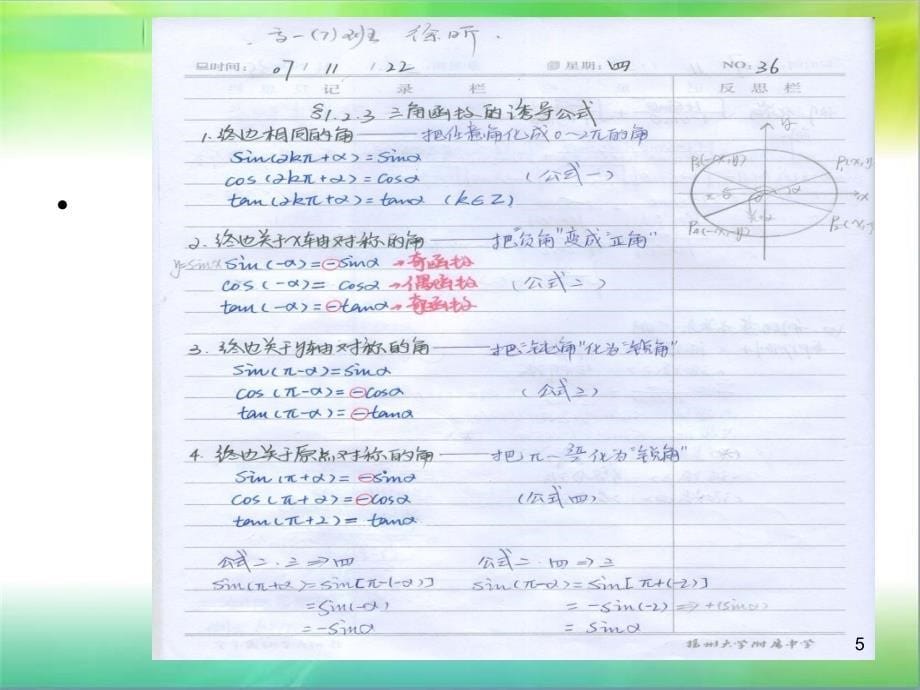 高一(7)班 徐昕.
时间: 07 / 11 / 22 星期: 四 NO: 36
记 录 栏 反思栏
§1.2.3 三角函数的诱导公式
1. 终边相同的角——把任意角化成0~2π的角
sin(2kπ+α)=sinα
cos(2kπ+α)=cosα (公式一)
tan(2kπ+α)=tanα (k∈Z)
2. 终边关于x轴对称的角——把"负角"变成"正角"
y=sinx sin(-α)=-sinα→奇函数
cos(-α)= cosα→偶函数 (公式二)
tan(-α)=-tanα→奇函数
3. 终边关于y轴对称的角——把"钝角"化为"锐角"
sin(π-α)=sinα
cos(π-α)=-cosα (公式三)
tan(π-α)=-tanα
4. 终边关于原点对称的角——把π~3π/2化为"锐角"
sin(π+α)=-sinα
cos(π+α)=-cosα (公式四)
tan(π+2)= tanα
公式二.三⇒四 公式二.四⇒三
sin(π+α)=sin[π-(-α)] sin(π-α)=sin[π+(-2)]
=sin(-α) =-sin(-2)⇒+(sinα)
=-sinα = sinα
y
P3(-x,y) P1(x,y)
x
P4(-x,-y) P2(x,-y)
扬州大学附属中学
5